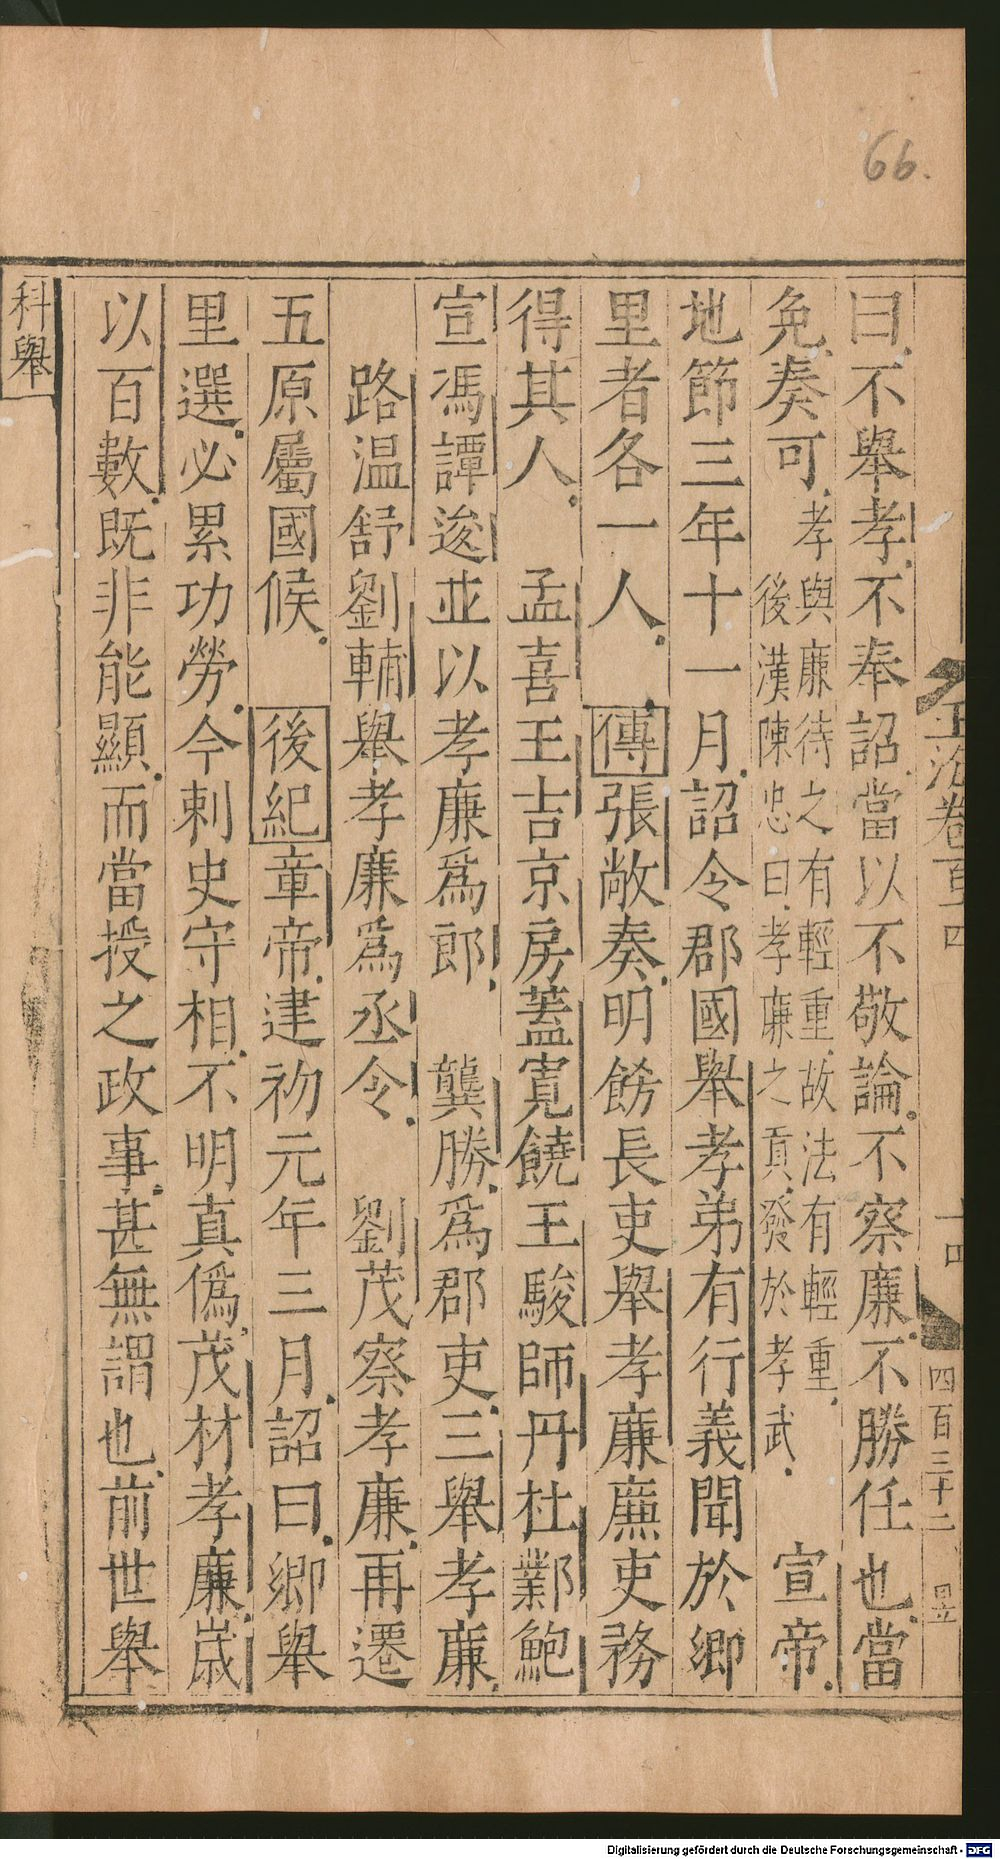 66.
曰.不舉孝.不奉詔.當以不敬論.不察廉.不勝任也.當
免.奏可.孝與廉待之有輕重.故法有輕重.
後漢陳忠曰.孝廉之貢.發於孝武.
宣帝.
地節三年十一月.詔令郡國舉孝弟有行義聞於鄉
里者各一人.傳張敞奏.明飭長吏舉孝廉廉吏務
得其人.孟喜王吉京房蓋寬饒王駿師丹杜鄴鮑
宣馮譚逡並以孝廉爲郎.龔勝.爲郡吏.三舉孝廉.
路温舒劉輔舉孝廉爲丞令.劉茂察孝廉.再遷
五原屬國候.後紀章帝.建初元年三月.詔曰.鄉舉
里選.必累功勞.今刺史守相.不明真僞.茂材孝廉.歲
以百數.既非能顯.而當授之政事.甚無謂也.前世舉
科舉
卷百四
十四
四百三十二
Digitalisierung gefördert durch die Deutsche Forschungsgemeinschaft - DFG